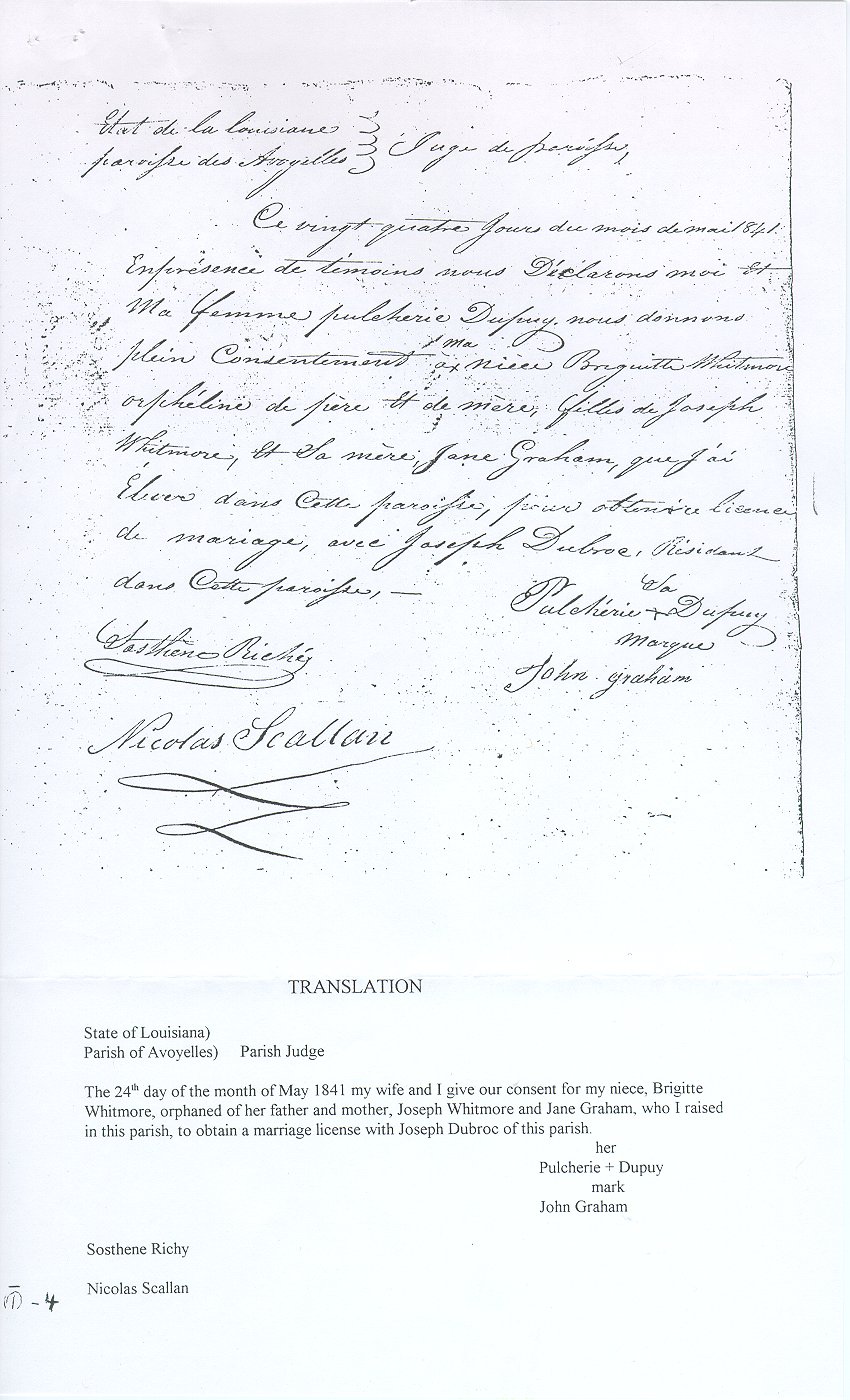 Etat de la louisiane
paroisse des Avoyelles } Juge de paroisse,
Ce vingt quatre Jours du mois de mai 1841
Enprésence de témoins nous Déclarons moi Et
Ma femme pulcherie Dupuy. nous donnons
ma
plein Consentement à niece Briguitte Whitmore
orphéline de père Et de mère, filles de Joseph
Whitmore, Et Sa mère, Jane Graham, que J'ai
Élever dans Cette paroisse, pour obtenire licence
de mariage, avec Joseph Dubroc, Résidant
dans Cette paroisse, —
Sa
Pulchérie + Dupuy
Marque
Sosthène Riché
John graham
Nicolas Scallan
TRANSLATION
State of Louisiana)
Parish of Avoyelles) Parish Judge
The 24th day of the month of May 1841 my wife and I give our consent for my niece, Brigitte
Whitmore, orphaned of her father and mother, Joseph Whitmore and Jane Graham, who I raised
in this parish, to obtain a marriage license with Joseph Dubroc of this parish.
her
Pulcherie + Dupuy
mark
John Graham
Sosthene Richy
Nicolas Scallan
(1) - 4